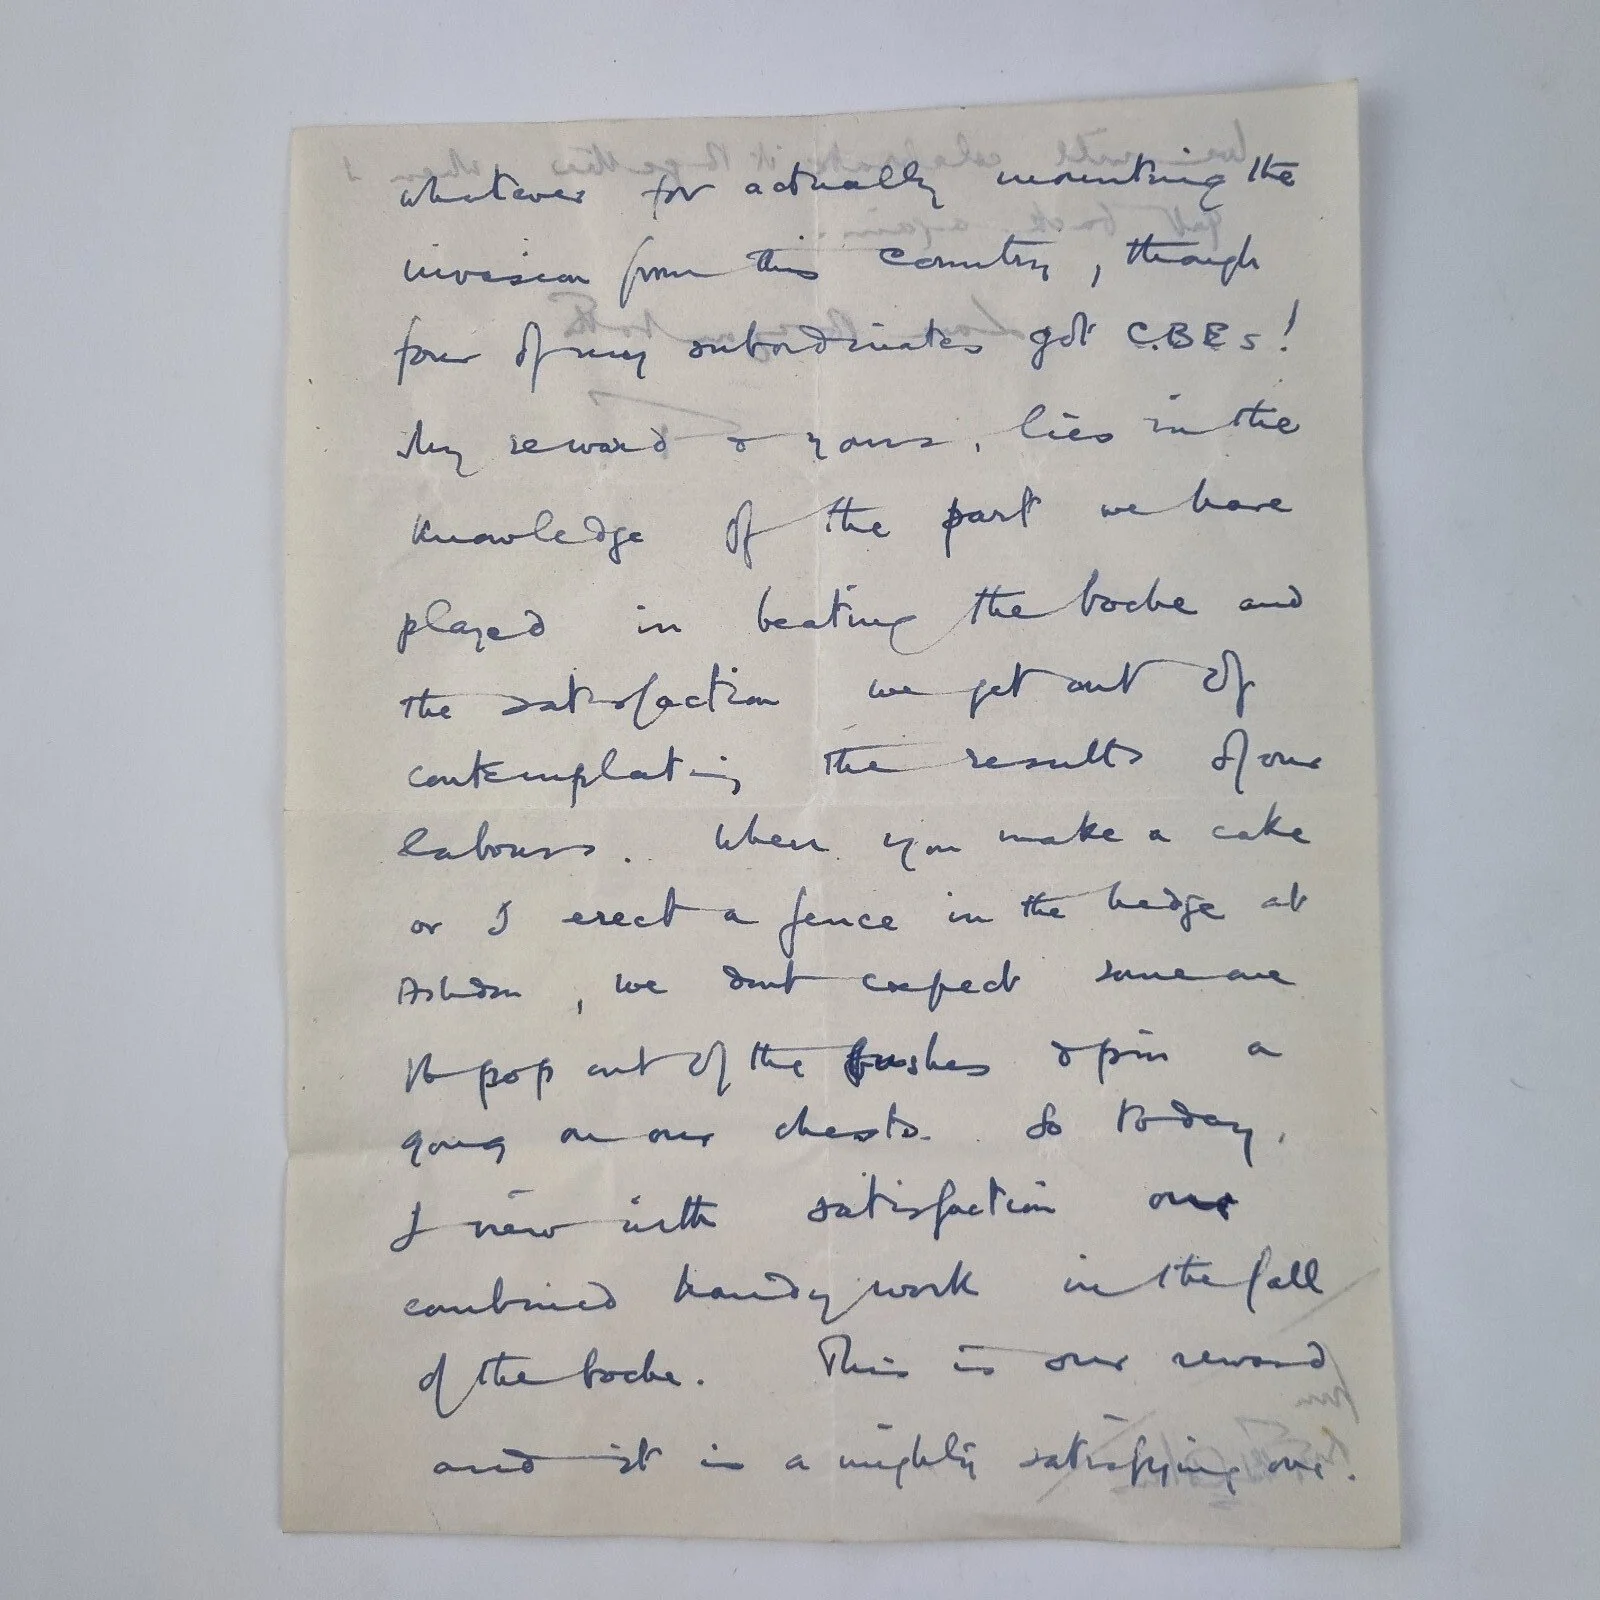 whatever for actually mounting the
invasion from this country, though
four of my subordinates got C.B.Es!
My reward & yours, lies in the
knowledge of the part we have
played in beating the boche and
the satisfaction we get out of
contemplating the results of our
labours. When you make a cake
or I erect a fence in the hedge at
Ashdon, we dont expect someone
to pop out of the bushes & pin a
gong on our chests. So today,
I view with satisfaction our
combined handywork in the fall
of the boche. This is our reward
and it is a mighty satisfying one.